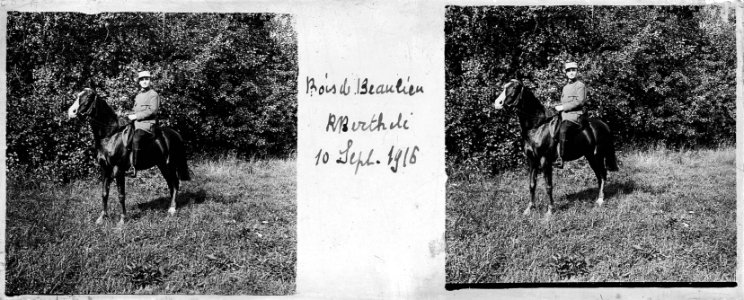 Bois de Beaulieu
R Berthele
10 Sept. 1916